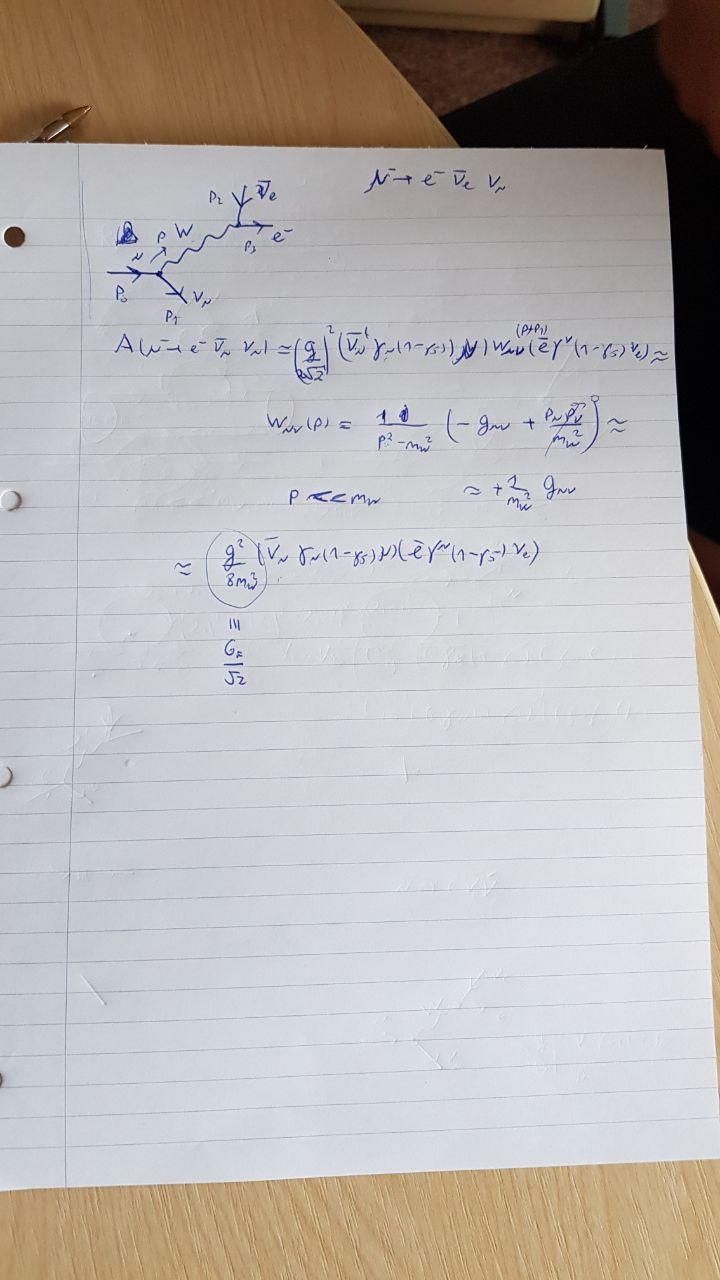 μ⁻→ e⁻ ν̄e νμ
p2 ν̄e
p W
μ p3 e⁻
p0 νμ
p1
A(μ⁻→ e⁻ ν̄μ νμ) ≈ (g/2√2)² (ν̄μ γμ(1-γ5) μ) Wμν(p+p1) (ē γ^ν(1-γ5) νe) ≈
Wμν(p) = 1/(p²-mw²) (-gμν + pμpν/mw²) ≈
p << mw ≈ +1/mw² gμν
≈ g²/8mw² (ν̄μ γμ(1-γ5) μ)(ē γ^μ(1-γ5) νe)
≡
GF/√2